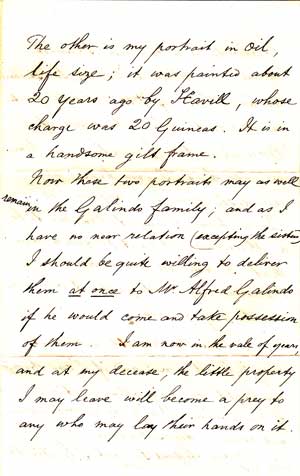 The other is my portrait in Oil,
life size; it was painted about
20 years ago by Havill, whose
charge was 20 Guineas. It is in
a handsome gilt frame.
Now these two portraits may as well
remain
in the Galindo family; and as I
have no near relation (excepting the sisters)
I should be quite willing to deliver
them at once to Mr Alfred Galindo
if he would come and take possession
of them. I am now in the vale of years,
and at my decease, the little property
I may leave will become a prey to
any who may lay their hands on it.